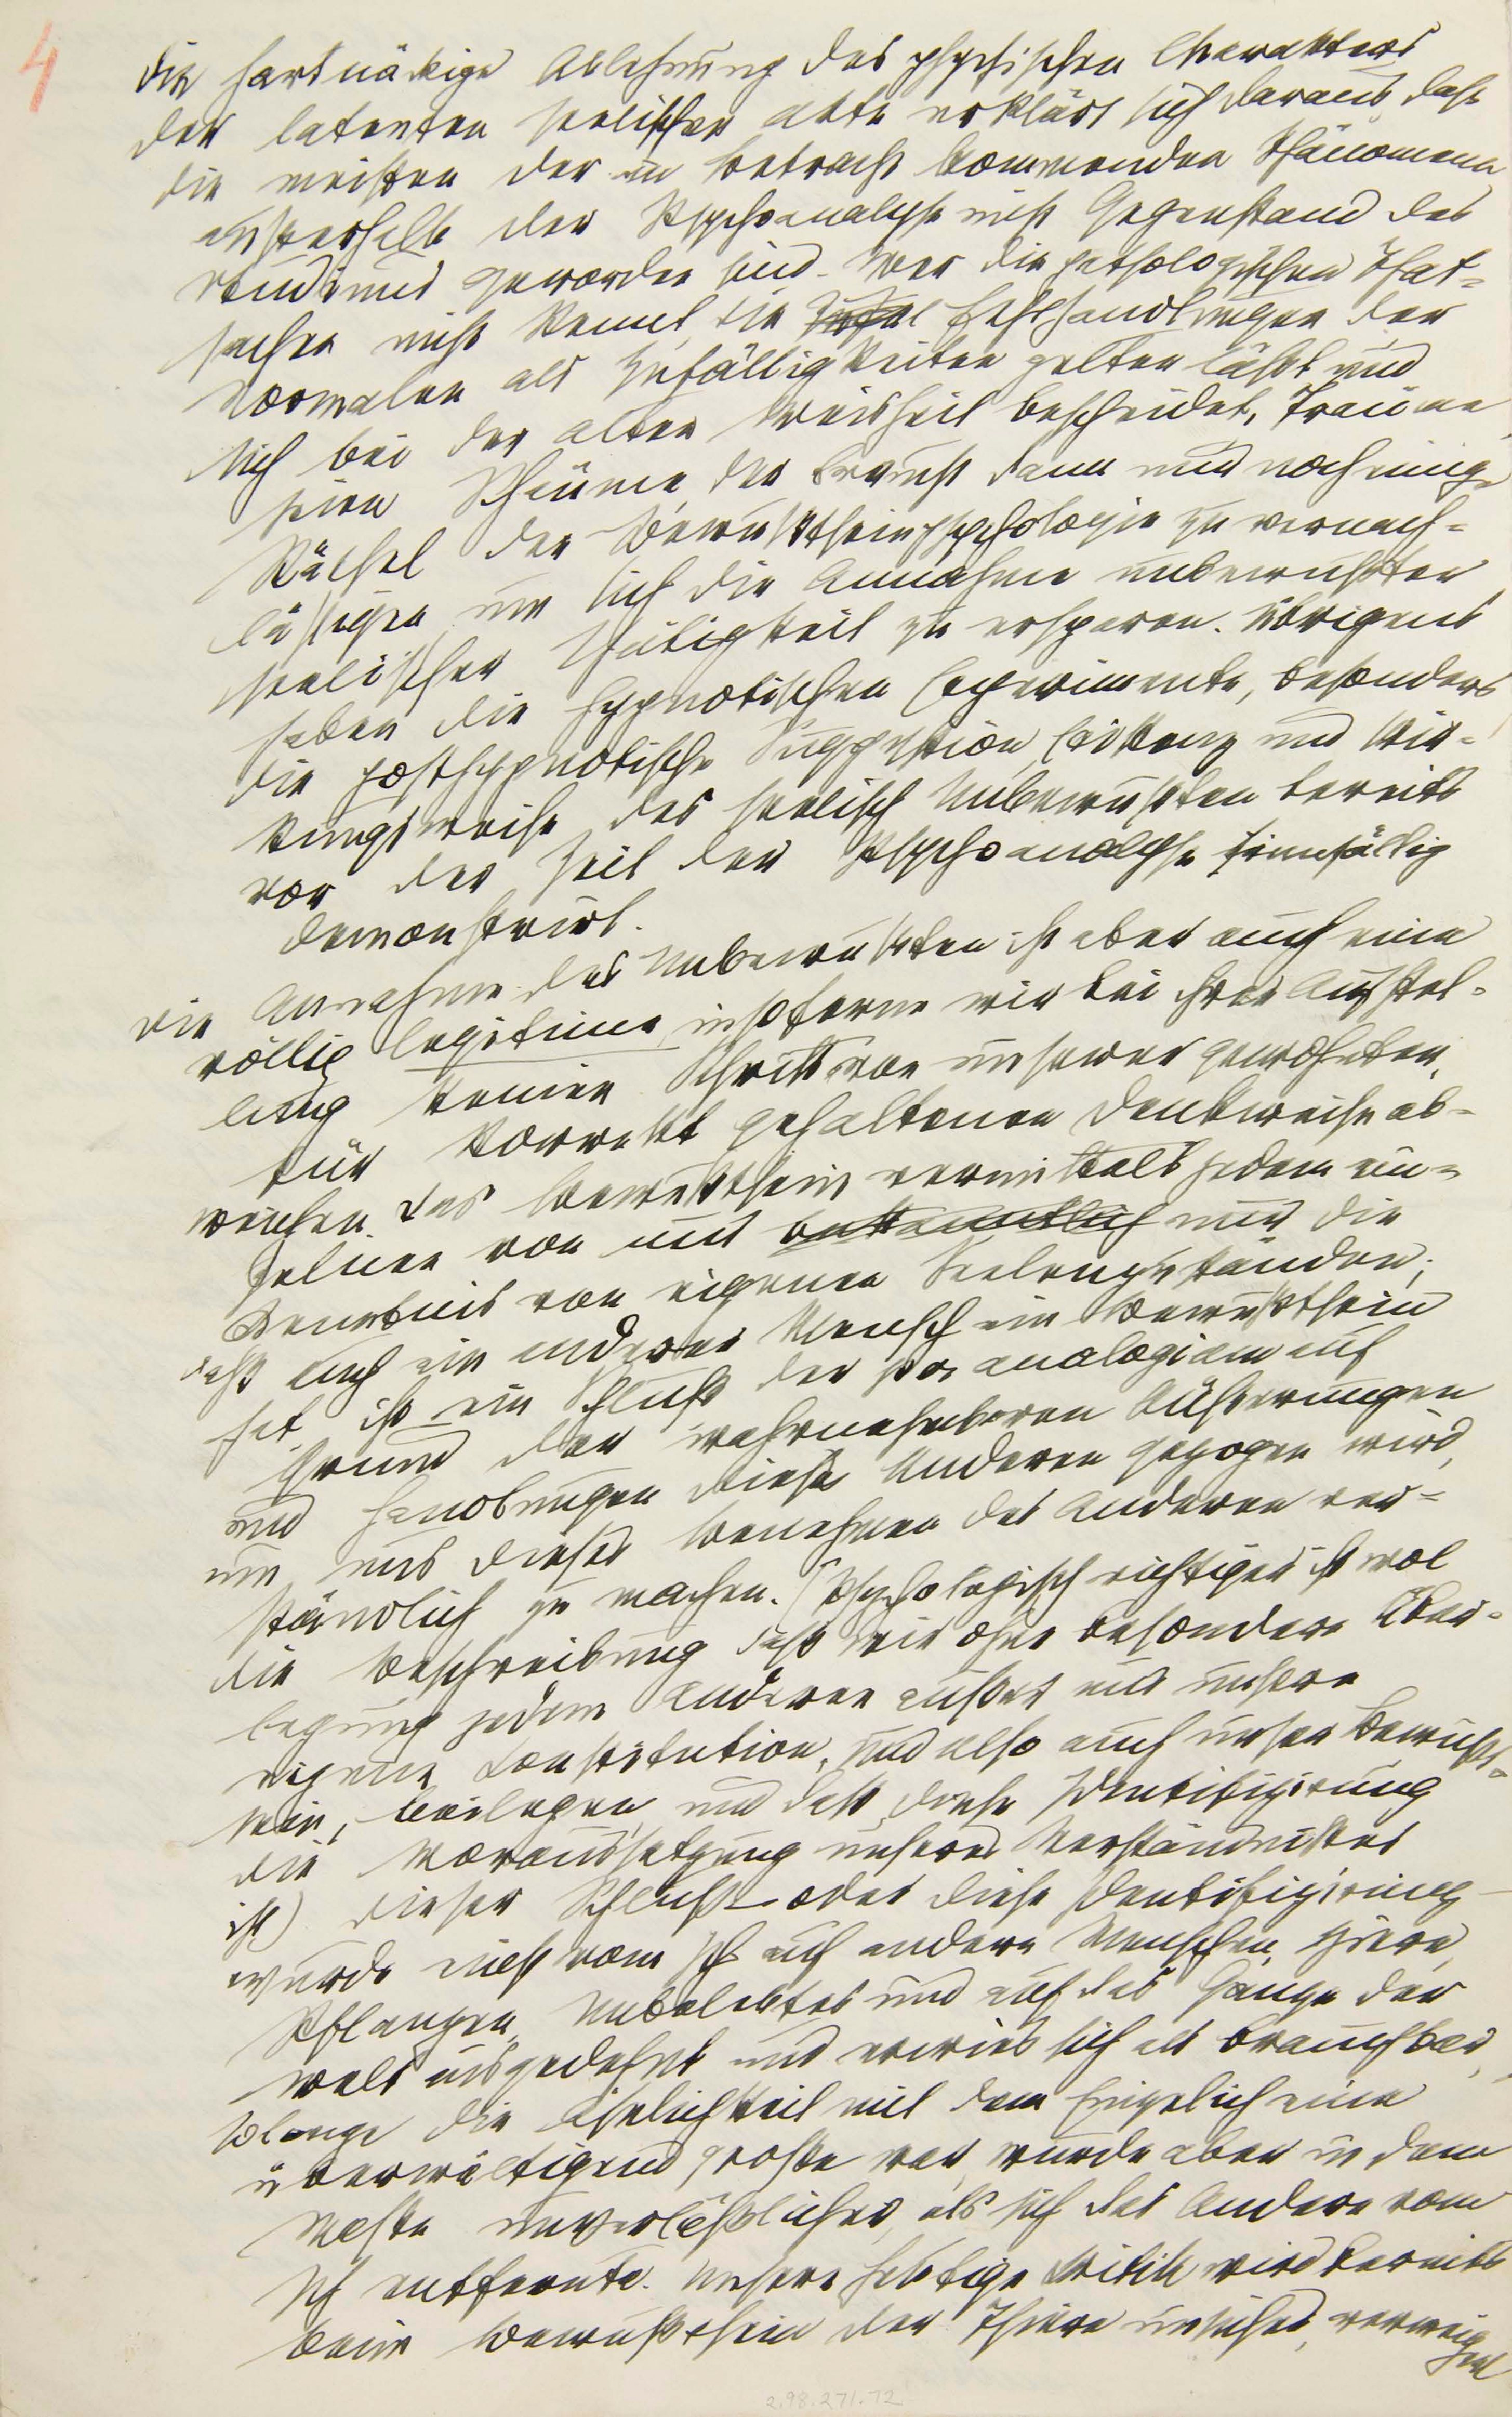 4
Die hartnäckige Ablehnung des psychischen Charakters
der latenten seelischen Akte erklärt sich daraus, daß
die meisten der in Betracht kommenden Phänomene
außerhalb der Psychoanalyse nicht Gegenstand des
Studiums geworden sind. Wer die pathologischen That-
sachen nicht kennt, die Fehlhandlungen der
Normalen als Zufälligkeiten gelten läßt und
sich bei der alten Weisheit bescheidet, Träume
seien Schäume, der braucht dann nur noch einige
Räthsel der Bewußtseinspsychologie zu vernach-
lässigen, um sich die Annahme unbewußter
seelischer Thätigkeit zu ersparen. Übrigens
haben die hypnotischen Experimente, besonders
die posthypnotische Suggestion, Existenz und Wir-
kungsweise des seelisch Unbewußten bereits
vor der Zeit der Psychoanalyse sinnfällig
demonstrirt.
Die Annahme des Unbewußten ist aber auch eine
völlig legitime, insoferne wir bei ihrer Aufstel-
lung keinen Schritt von unserer gewohnten,
für korrekt gehaltenen Denkweise ab-
weichen. Das Bewußtsein vermittelt jedem ein-
zelnen von uns bekanntlich nur die
Kenntnis von eigenen Seelenzuständen;
daß auch ein anderer Mensch ein Bewußtsein
hat, ist ein Schluß, der per analogiam auf
Grund der wahrnehmbaren Äußerungen
und Handlungen dieses Anderen gezogen wird,
um uns dieses Benehmen des Anderen ver-
ständlich zu machen. (Psychologisch richtiger ist wol
die Beschreibung, daß wir ohne besondere Über-
legung jedem Anderen außer uns unsere
eigene Konstitution, und also auch unser Bewußt-
sein, beilegen, und daß diese Identifizirung
die Voraussetzung unseres Verständnisses
ist.) Dieser Schluß – oder diese Identifizirung –
wurde einst vom Ich auf andere Menschen, Thiere,
Pflanzen, Unbelebtes und auf das Ganze der
Welt ausgedehnt und erwies sich als brauchbar,
solange die Ähnlichkeit mit dem Einzelich eine
überwältigend große war, wurde aber in dem
Maße unverläßlicher, als sich das Andere vom
Ich entfernte. Unsere heutige Kritik wird bereits
beim Bewußtsein der Thiere unsicher, verweigert
2.98.271.72